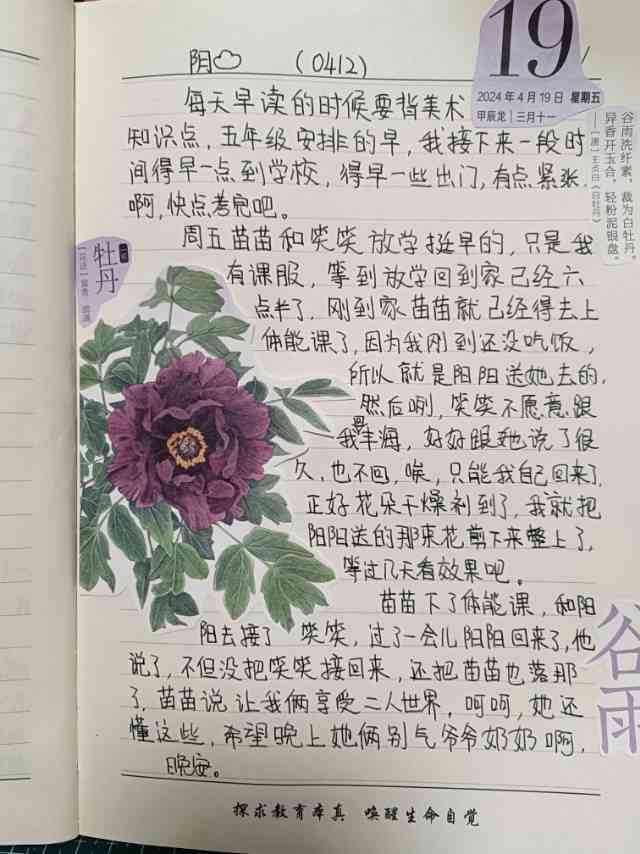 阴 (0412)
19
2024年4月19日 星期五
甲辰龙 三月十一
谷雨洗纤素，裁为白牡丹。
异香开玉合，轻粉泥银盘。
［唐］王贞白《白牡丹》
每天早读的时候要背美术
知识点，五年级安排的早，我接下来一段时
间得早一点到学校，得早一些出门，有点紧张，
啊，快点考完吧。
周五苗苗和笑笑放学挺早的，只是我
牡丹
有课服，等到放学回到家已经六
点半了，刚到家苗苗就已经得去上
体能课了，因为我刚到还没吃饭，
所以就是阳阳送她去的，
然后咧，笑笑不愿意跟
我 海，好好跟她说了很
久，也不回，唉，只能我自己回来了，
正好花朵干燥剂到了，我就把
阳阳送的那束花剪下来整上了，
等过几天看效果吧。
苗苗下了体能课，和阳
阳去接了笑笑，过了一会儿阳阳回来了，他
说了，不但没把笑笑接回来，还把苗苗也落那
了，苗苗说让我俩享受二人世界，呵呵，她还
懂这些，希望晚上她俩别气爷爷奶奶啊，
晚安。
谷雨
探求教育本真 唤醒生命自觉